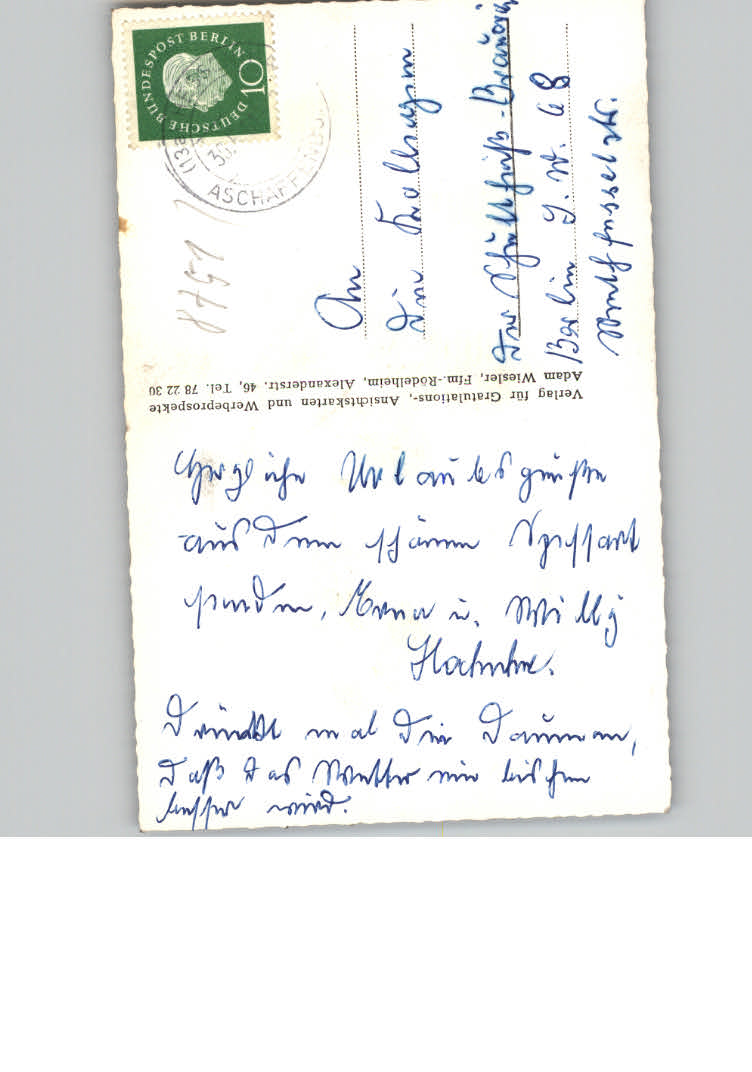 Herzliche Urlaubsgrüße
aus dem schönen Spessart
senden, Erna u. Willy
Hahnke.
Drückt mal die Daumen,
daß das Wetter ein bischen
besser wird.
An
die Kolleginnen
der Schultheiß-Brauerei
Berlin S. W. 68
DEUTSCHE BUNDESPOST BERLIN
10
ASCHAFFENBURG
8751
Verlag für Gratulations-, Ansichtskarten und Werbeprospekte
Adam Wiesler, Ffm.-Rödelheim, Alexanderstr. 46, Tel. 78 22 30